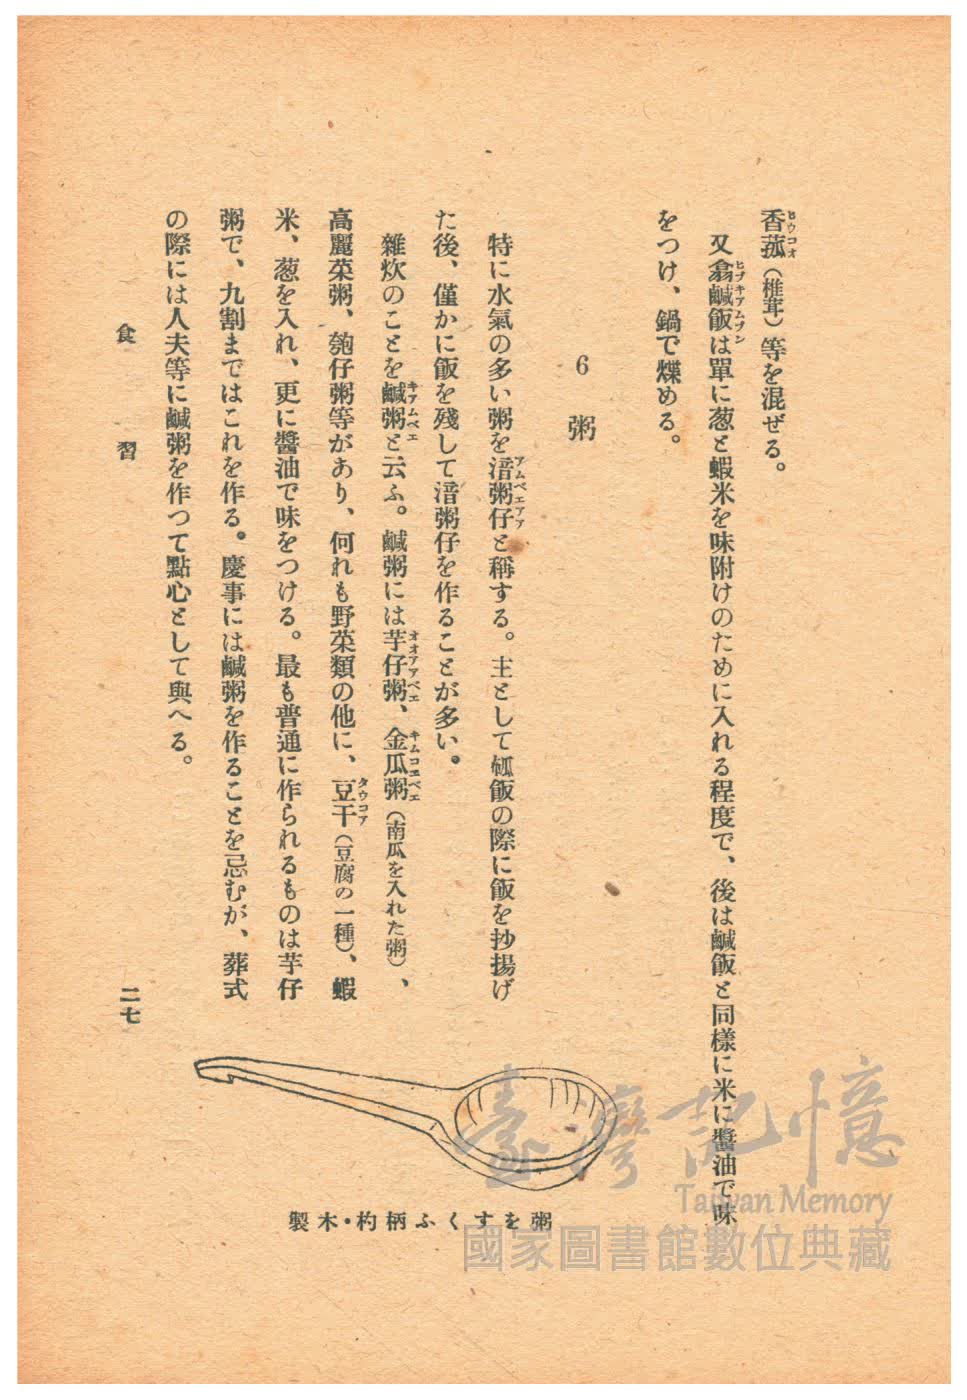 香菰（椎茸）等を混ぜる。
又翕鹹飯は單に葱と蝦米を味附けのために入れる程度で、後は鹹飯と同樣に米に醬油で味
をつけ、鍋で煠める。
6 粥
特に水氣の多い粥を湆粥仔と稱する。主として飯の際に飯を抄揚げ
た後、僅かに飯を殘して湆粥仔を作ることが多い。
雜炊のことを鹹粥と云ふ。鹹粥には芋仔粥、金瓜粥（南瓜を入れた粥）、
高麗菜粥、匏仔粥等があり、何れも野菜類の他に、豆干（豆腐の一種）、蝦
米、葱を入れ、更に醬油で味をつける。最も普通に作られるものは芋仔
粥で、九割まではこれを作る。慶事には鹹粥を作ることを忌むが、葬式
の際には人夫等に鹹粥を作つて點心として與へる。
粥をすくふ柄杓・木製
食習
二七
臺灣記憶
Taiwan Memory
國家圖書館數位典藏